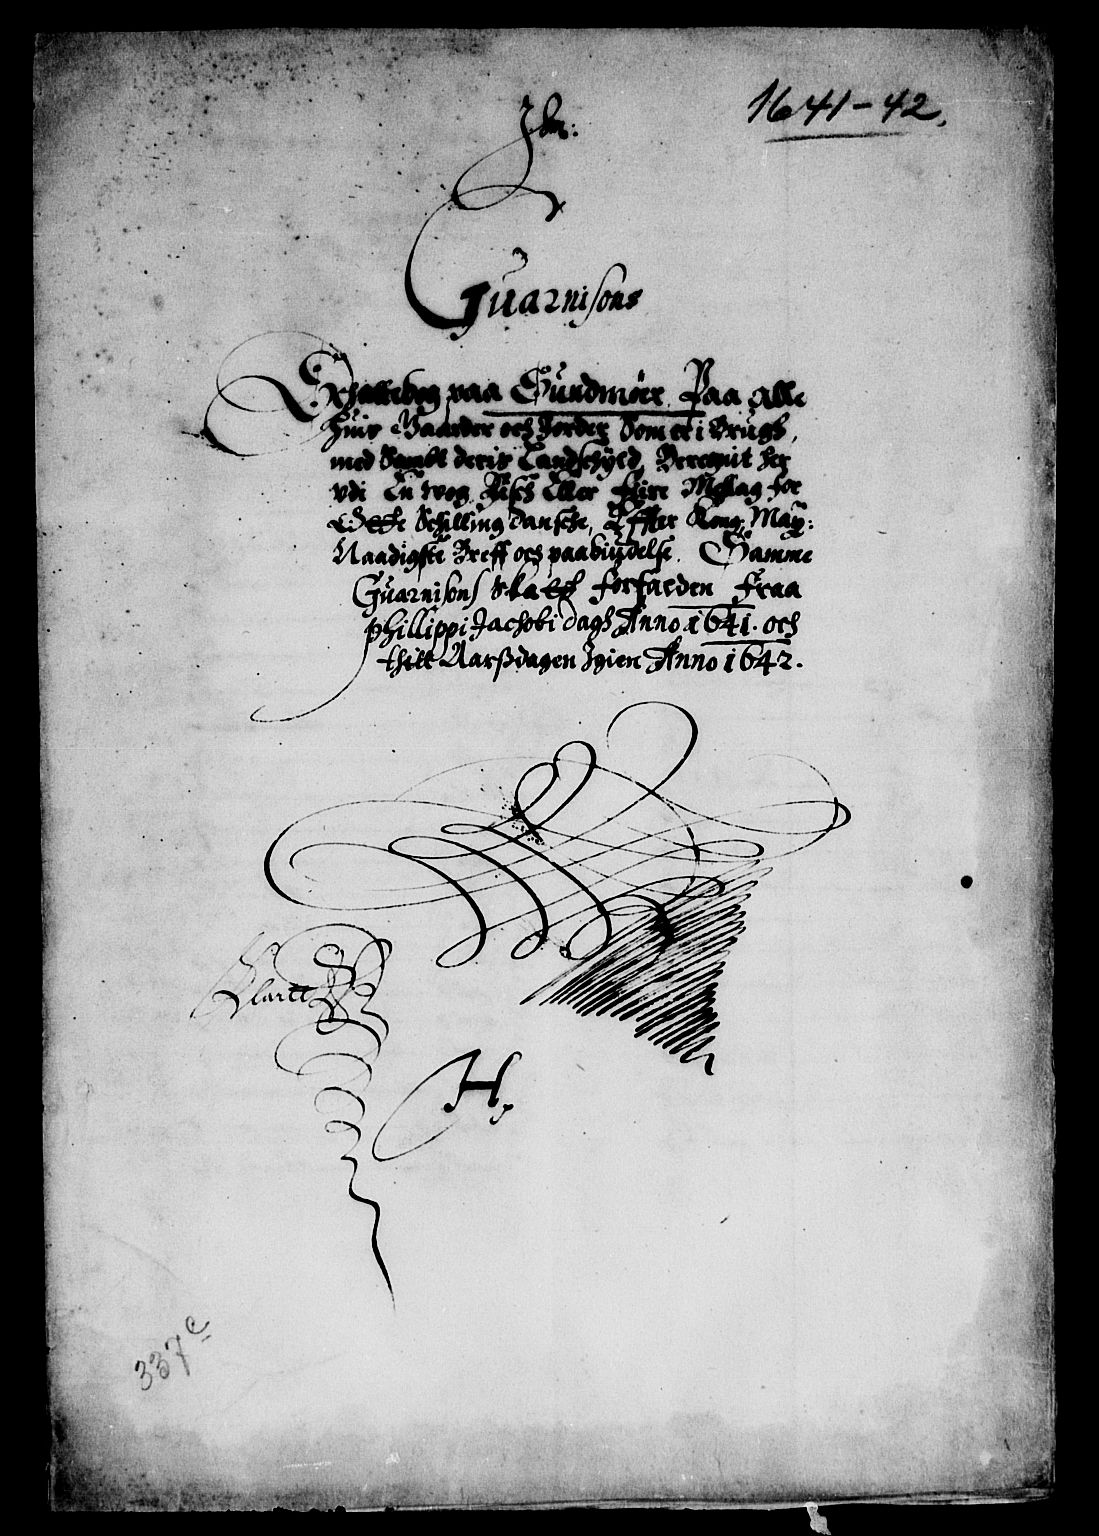 1641-42.
Guarnisons
Schattebog paa Sundmöer. Paa alle
huis Gaarder och Jorder Som er i Brugh,
med Sambt deris Landschyld, Beregnit her
vdi En wog Fisch Eller fiire Mæslag for
Schilling dansche, Effter Kong: May:
Naadigste Breff och paabÿdelse. Samme
Guarnisons Skatt forfalden Fraa
Phillippi Jachobi dagh Anno 1641. och
thill Aarßdagen Igien Anno 1642.
H,
337 c